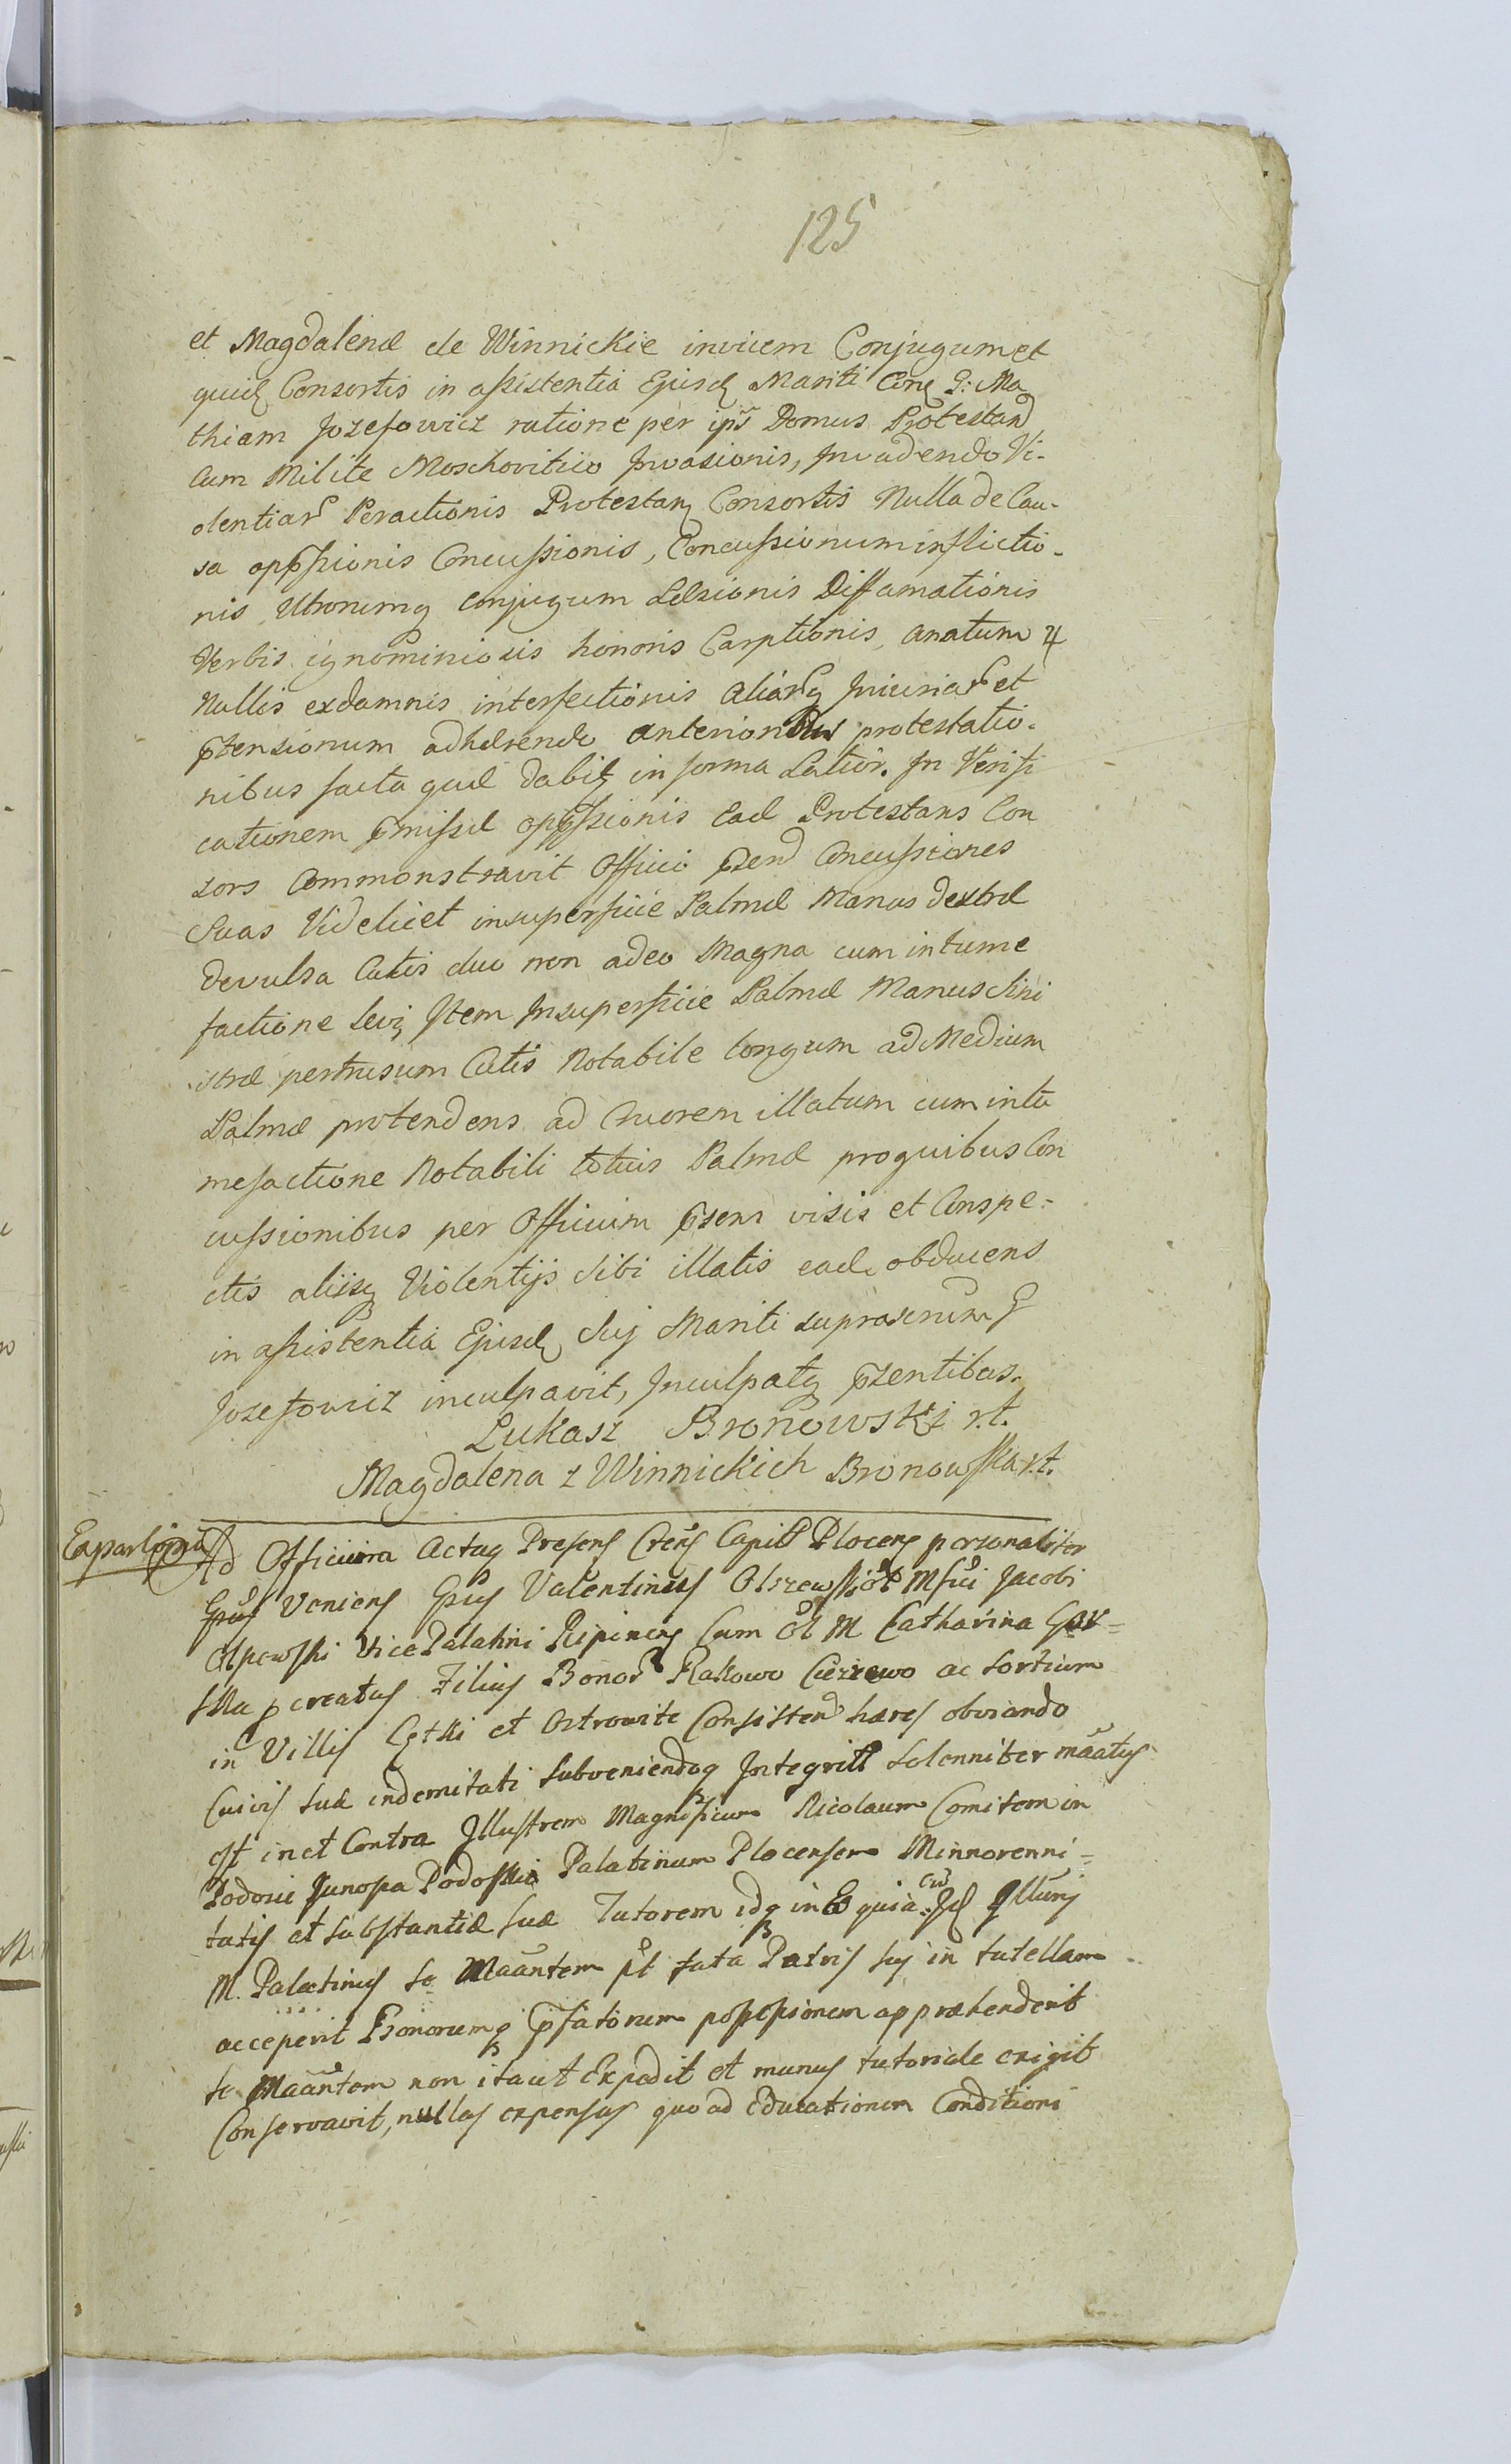 125
et Magdalenæ de Winnickie invicem Conjugum et
quid Consortis in assistentia Ejusd Mariti Con G: Ma
thiam Jozefowicz ratione per ips Domus Protestan
Cum Milite Moschovitico Invasionis, Invadendo Vi-
olentiar Peractionis Protestan Consortis Nulla de Cau-
sa oppssionis Concussionis, Concussionum inflictio-
nis Utrorumq conjugum Læsionis Diffamationis
Verbis ignominiosis honoris Carptionis, anatum 4
Nullis exdamnis interfectionis aliarq Iniuriar et
ptensionum adhærendo anterioribus protestatio-
nibus facta quæ dabit in forma Latior. In Verifi
cationem pmissæ oppssionis Ead Protestans Con
sors Commonstravit Officio psen Concussiones
Suas Videlicet in superficie Palmæ Manus dextræ
devulsa Cutis duo non adeo Magna cum intume
factione levi Item In superficie Palmæ Manus Sini
stræ pertrusum Cutis Notabile longum ad Medium
Palmæ protendens ad Cruorem illatum cum intu
mefactione Notabili totius Palmæ pro quibus Con
cussionibus per Officium psens visis et Conspe-
ctis aliisq Violentijs Sibi illatis ead obducens
in assistentia Ejusd Sui Mariti suprascrum G
Jozefowicz inculpavit, Inculpatq psentibus.
Lukasz Bronowski r.t.
Magdalena z Winnickich Bronowska r.t.
Ex parl ppria
Ad Officium Actaq Presens Crens Capit Plocens personaliter
Gnus Veniens Gnus Valentinus Olszewski ol Mfici Jacobi
Olszewski Vice Palatini Ripinens Cum Ol M Catharina Gor-
ska pcreatus Filius Bonor Rakowo Czerewo ac Sortium
in Villis Cetki et Ostrowite Consisten hares obviando
Cuivis suæ indemnitati Subveniendoq Integrit Solenniter maatus
est in et Contra Illustrem Magnificum Nicolaum Comitem in
Podosie Junosa Podoski Palatinum Plocensem Minorenni-
tatis et Substantiæ suæ Tutorem idq in Eo quia Id Illuns
M. Palatinus se Maantem pt fata Patris sui in tutellam
acceperit Bonorumq Pfatorum possessionem appræhenderit
se Maantem non ita ut Expedit et munus tutoriale exigit
Conservavit, nullas expensas quo ad Educationem Conditioni